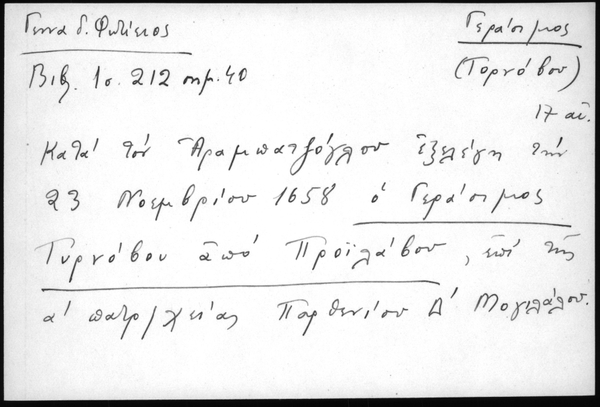 Γεννα δ. Φωτίειος
Γεράσιμος
Βιβ. 1 σ. 212 σημ. 40
(Τορνόβου)
17 αἰ.
Κατά τόν Ἀραμπατζόγλου ἐξελέγη τήν
23 Νοεμβρίου 1658 ὁ Γεράσιμος
Τυρνόβου ἀπό Προϊλάβου, ἐπί τῆς
α' πατρ/χείας Παρθενίου Δ' Μογιλάλου.